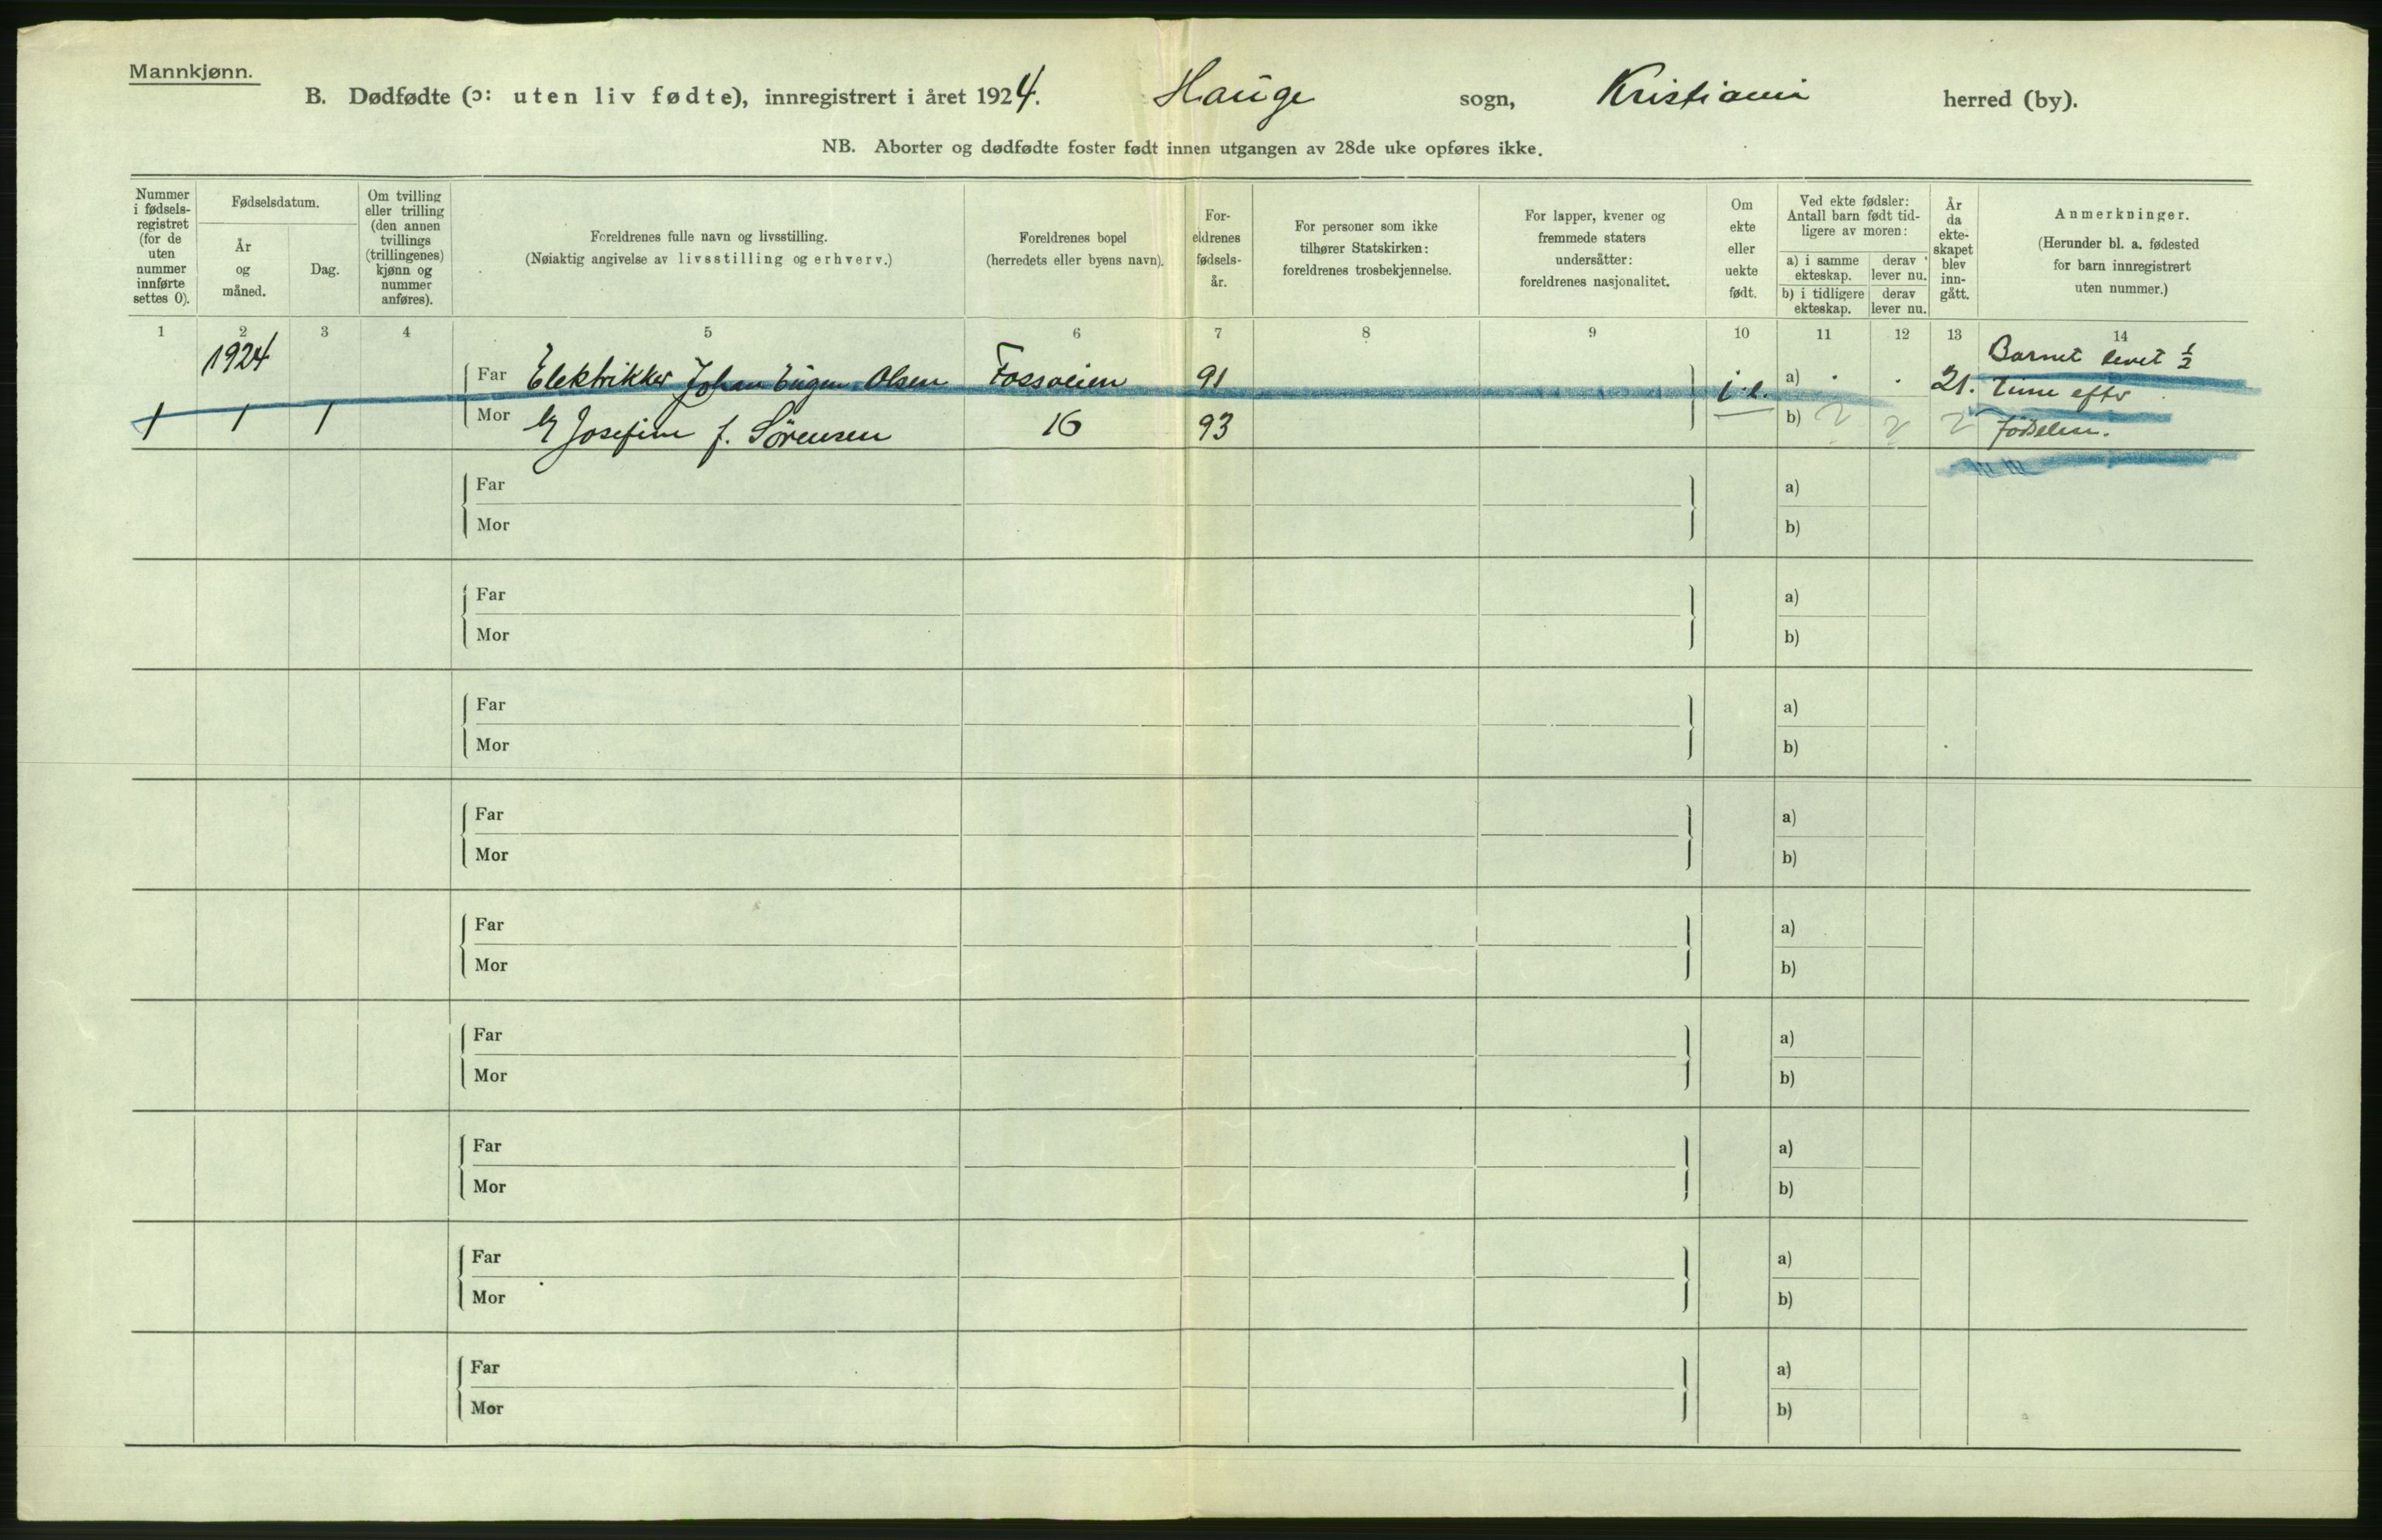 Mannkjønn.
B. Dødfødte (ɔ: uten liv fødte), innregistrert i året 1924. Hauge sogn, Kristiania herred (by).
NB. Aborter og dødfødte foster født innen utgangen av 28de uke opføres ikke.
Nummer
i fødsels-
registret
(for de
uten
nummer
innførte
settes 0).
Fødselsdatum.
År
og
måned.
Dag.
Om tvilling
eller trilling
(den annen
tvillings
(trillingenes)
kjønn og
nummer
anføres).
Foreldrenes fulle navn og livsstilling.
(Nøiaktig angivelse av livsstilling og erhverv.)
Foreldrenes bopel
(herredets eller byens navn).
For-
eldrenes
fødsels-
år.
For personer som ikke
tilhører Statskirken:
foreldrenes trosbekjennelse.
For lapper, kvener og
fremmede staters
undersåtter:
foreldrenes nasjonalitet.
Om
ekte
eller
uekte
født.
Ved ekte fødsler:
Antall barn født tid-
ligere av moren:
a) i samme
ekteskap.
derav
lever nu.
b) i tidligere
ekteskap.
derav
lever nu.
År
da
ekte-
skapet
blev
inn-
gått.
Anmerkninger.
(Herunder bl. a. fødested
for barn innregistrert
uten nummer.)
1 2 3 4 5 6 7 8 9 10 11 12 13 14
1924 Barnet levet ½
Far Elektrikker Johan Eugen Olsen Fossveien 91 a) 21. time efter
1 1 1 Mor Josefine f. Sørensen 16 93 b) 2 2 2 fødselen.
Far a)
Mor b)
Far a)
Mor b)
Far a)
Mor b)
Far a)
Mor b)
Far a)
Mor b)
Far a)
Mor b)
Far a)
Mor b)
Far a)
Mor b)
Far a)
Mor b)